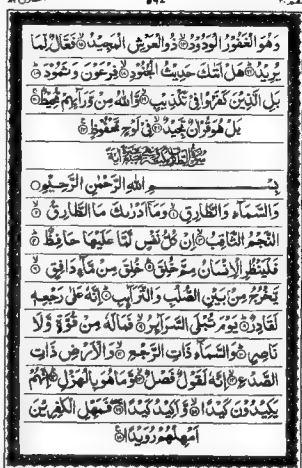 وَهُوَ الْغَفُوْرُ الْوَدُوْدُ ذُو الْعَرْشِ الْمَجِيْدُ فَعَّالٌ لِّمَا
يُرِيْدُ هَلْ اَتٰىكَ حَدِيْثُ الْجُنُوْدِ فِرْعَوْنَ وَثَمُوْدَ
بَلِ الَّذِيْنَ كَفَرُوْا فِيْ تَكْذِيْبٍ وَّاللّٰهُ مِنْ وَّرَآئِهِمْ مُّحِيْطٌ
بَلْ هُوَ قُرْاٰنٌ مَّجِيْدٌ فِيْ لَوْحٍ مَّحْفُوْظٍ
بِسْمِ اللّٰهِ الرَّحْمٰنِ الرَّحِيْمِ
وَالسَّمَآءِ وَالطَّارِقِ وَمَآ اَدْرٰىكَ مَا الطَّارِقُ
النَّجْمُ الثَّاقِبُ اِنْ كُلُّ نَفْسٍ لَّمَّا عَلَيْهَا حَافِظٌ
فَلْيَنْظُرِ الْاِنْسَانُ مِمَّ خُلِقَ خُلِقَ مِنْ مَّآءٍ دَافِقٍ
يَّخْرُجُ مِنْۢ بَيْنِ الصُّلْبِ وَالتَّرَآئِبِ اِنَّهٗ عَلٰى رَجْعِهٖ
لَقَادِرٌ يَوْمَ تُبْلَى السَّرَآئِرُ فَمَا لَهٗ مِنْ قُوَّةٍ وَّلَا
نَاصِرٍ وَالسَّمَآءِ ذَاتِ الرَّجْعِ وَالْاَرْضِ ذَاتِ
الصَّدْعِ اِنَّهٗ لَقَوْلٌ فَصْلٌ وَّمَا هُوَ بِالْهَزْلِ اِنَّهُمْ
يَكِيْدُوْنَ كَيْدًا وَّاَكِيْدُ كَيْدًا فَمَهِّلِ الْكٰفِرِيْنَ
اَمْهِلْهُمْ رُوَيْدًا